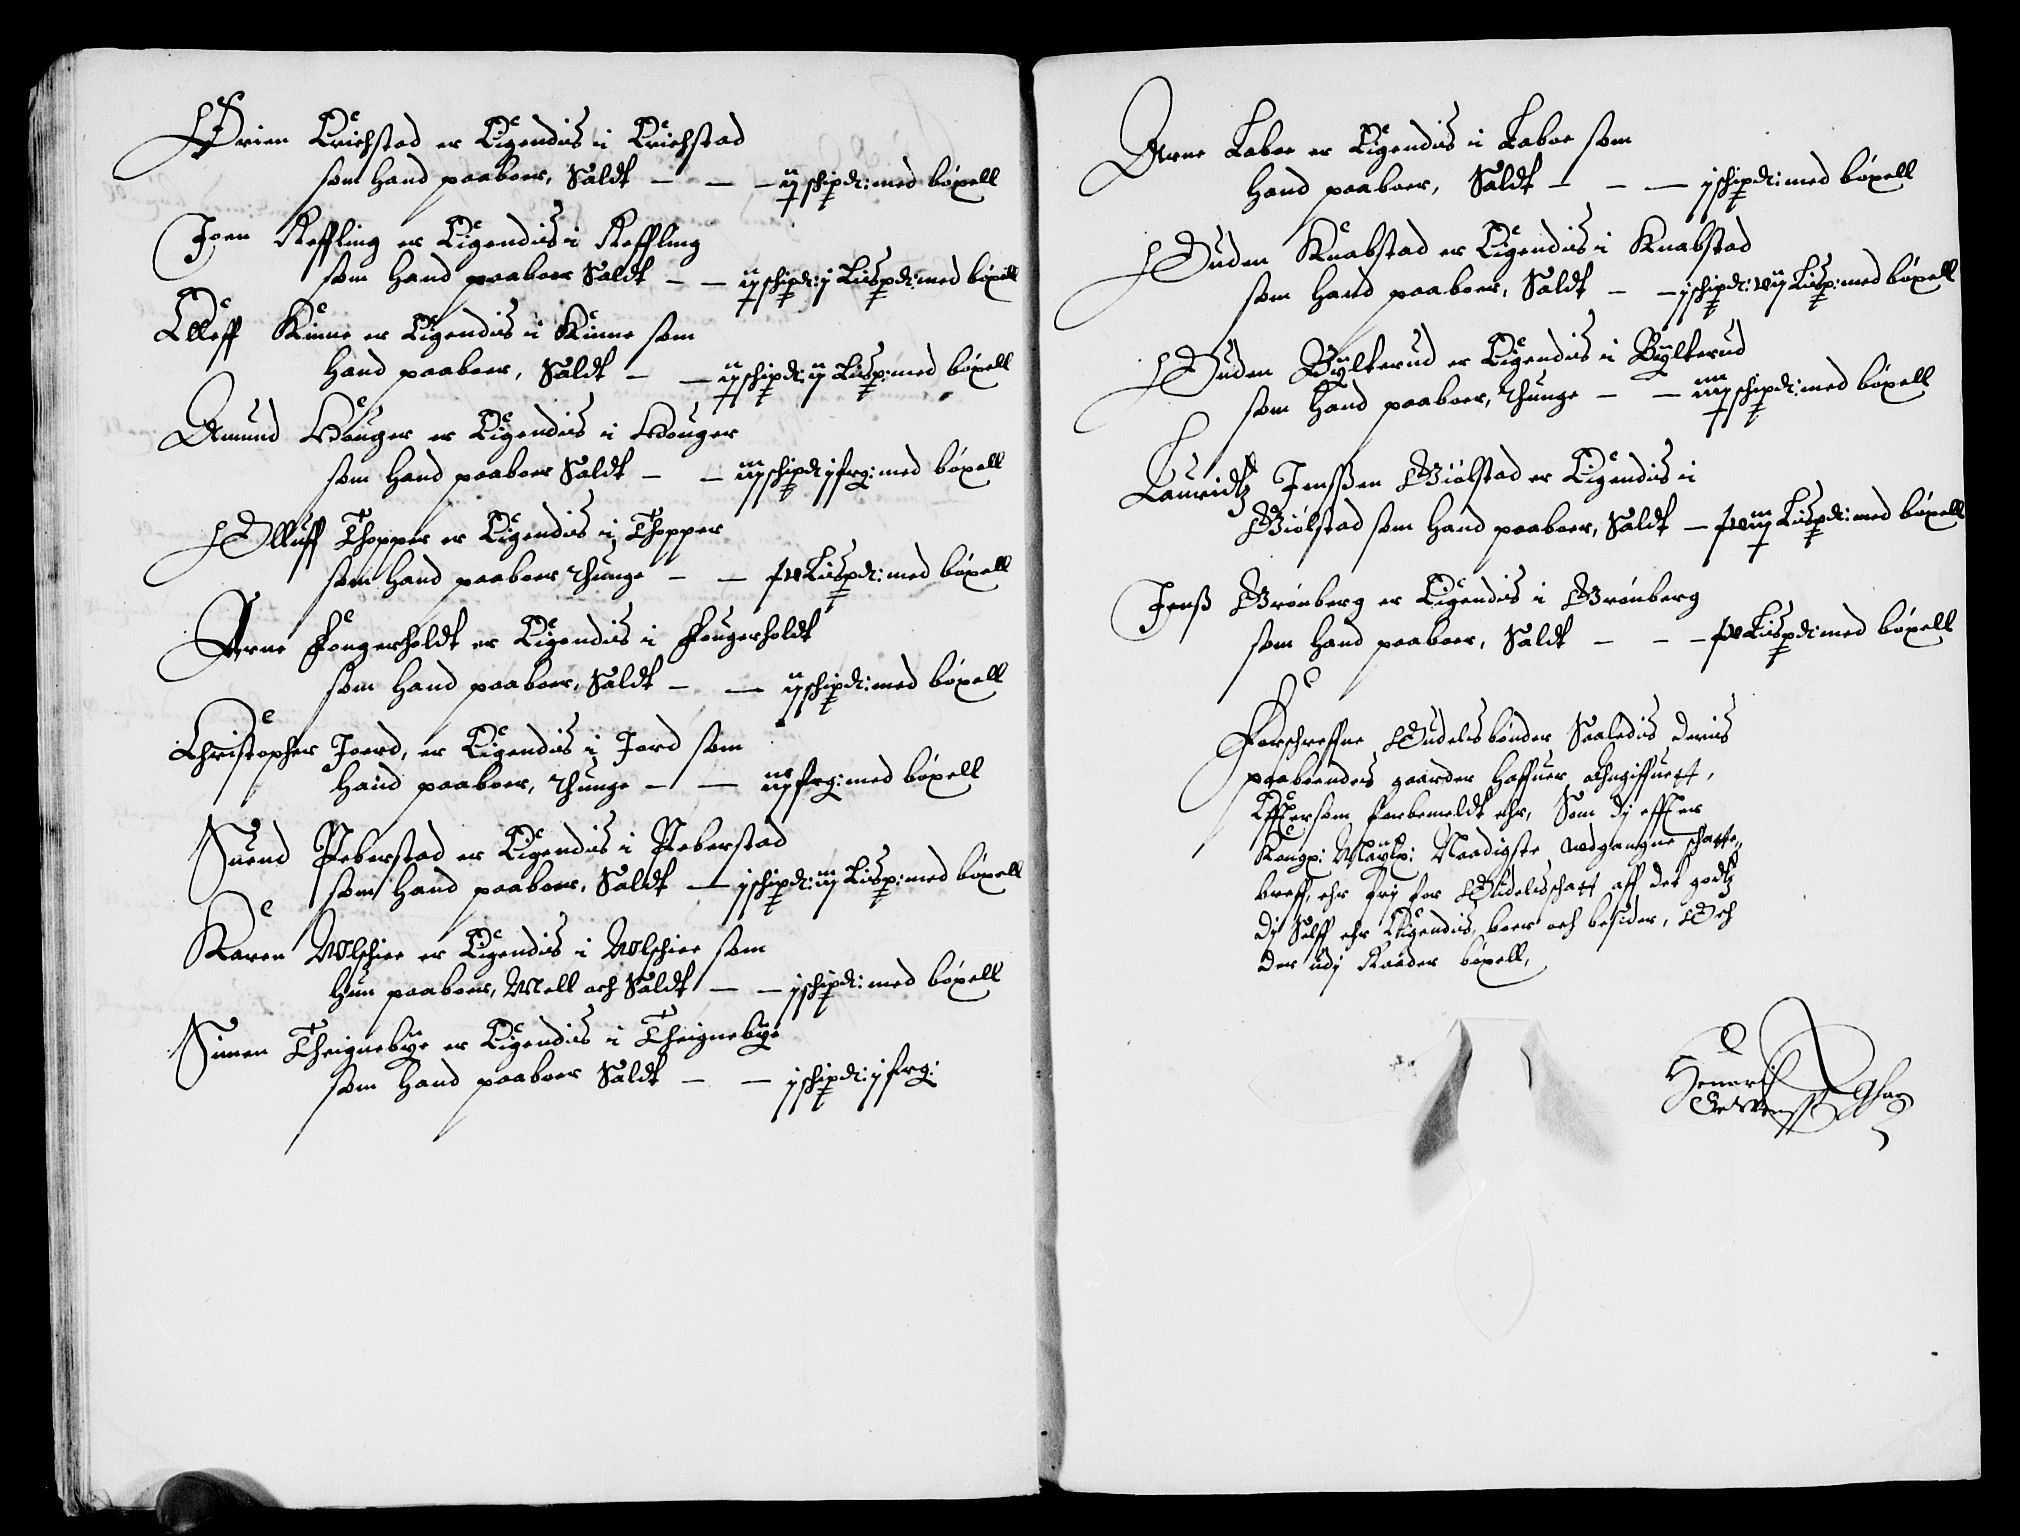 Ørien Erichstad er Eigendis i Erichstad
som hand paaboer, Saldt — — — ij schipdt: med böxell
Joen Reffling er Eigendis i Reffling
som hand paaboer Saldt — — ij schipdt: j Lispdt: med böxell
Elleff Kinne er Eigendis i Kinne som
hand paaboer, Saldt — — ij schipdt: ij Lisp: med böxell
Amund Houger er Eigendis i Houger
som hand paaboer Saldt — — iij schipdt j frg: med böxell
Olluff Thopper er Eigendis i Thopper
som hand paaboer thunge — — xv Lispdt: med böxell
Arne Fougerholdt er Eigendis i Fougerholdt
som hand paaboer, Saldt — — ij schipdt: med böxell
Christopher Joerd, er Eigendis i Jord som
hand paaboer, thunge — — iij frg: med böxell
Suend Peberstad er Eigendis i Peberstad
som hand paaboer, Saldt — j schipdt: iij Lisp: med böxell
Karen Wlschiee er Eigendis i Wlschiee som
hun paaboer, Mell och Saldt — — j schipdt: med böxell
Simen Theignebye er Eigendis i Theignebye
som hand paaboer Saldt — — j schipdt: j frg:
Arne Laboe er Eigendis i Laboe som
hand paaboer, Saldt — — — j schipdt: med böxell
Auden Knabstad er Eigendis i Knabstad
som hand paaboer, Saldt — — j schipdt: vij Lisp: med böxell
Auden Bylterud er Eigendis i Bylterud
som hand paaboer, thunge — — iiij schipdt: med böxell
Lauridtz Jenssen Giölstad er Eigendis i
Giölstad som hand paaboer, Saldt — xviij Lispdt: med böxell
Jenß Grönberg er Eigendis i Grönberg
som hand paaboer, Saldt — — — xv Lispdt: med böxell
Forschreffne Oudelsbönder Saaledis deris
paaboendes gaarder haffuer Angiffuett,
Efftersom forbemeldt ehr, Som dj effter
Kongl: Maytz: Naadigste udgangne schatte-
breff, ehr frj for Oudelsschatt aff det godtz
dj Selff ehr Eigendis, boer och besider, Och
der udj Raader böxell,
Henrich